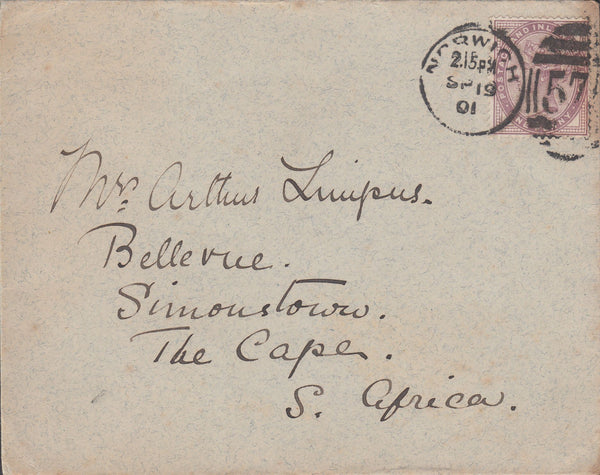 NORWICH
2.15PM
SP 19
01
57
POSTAGE AND INL
Mrs. Arthur Limpus.
Bellevue.
Simonstown.
The Cape.
S. Africa.